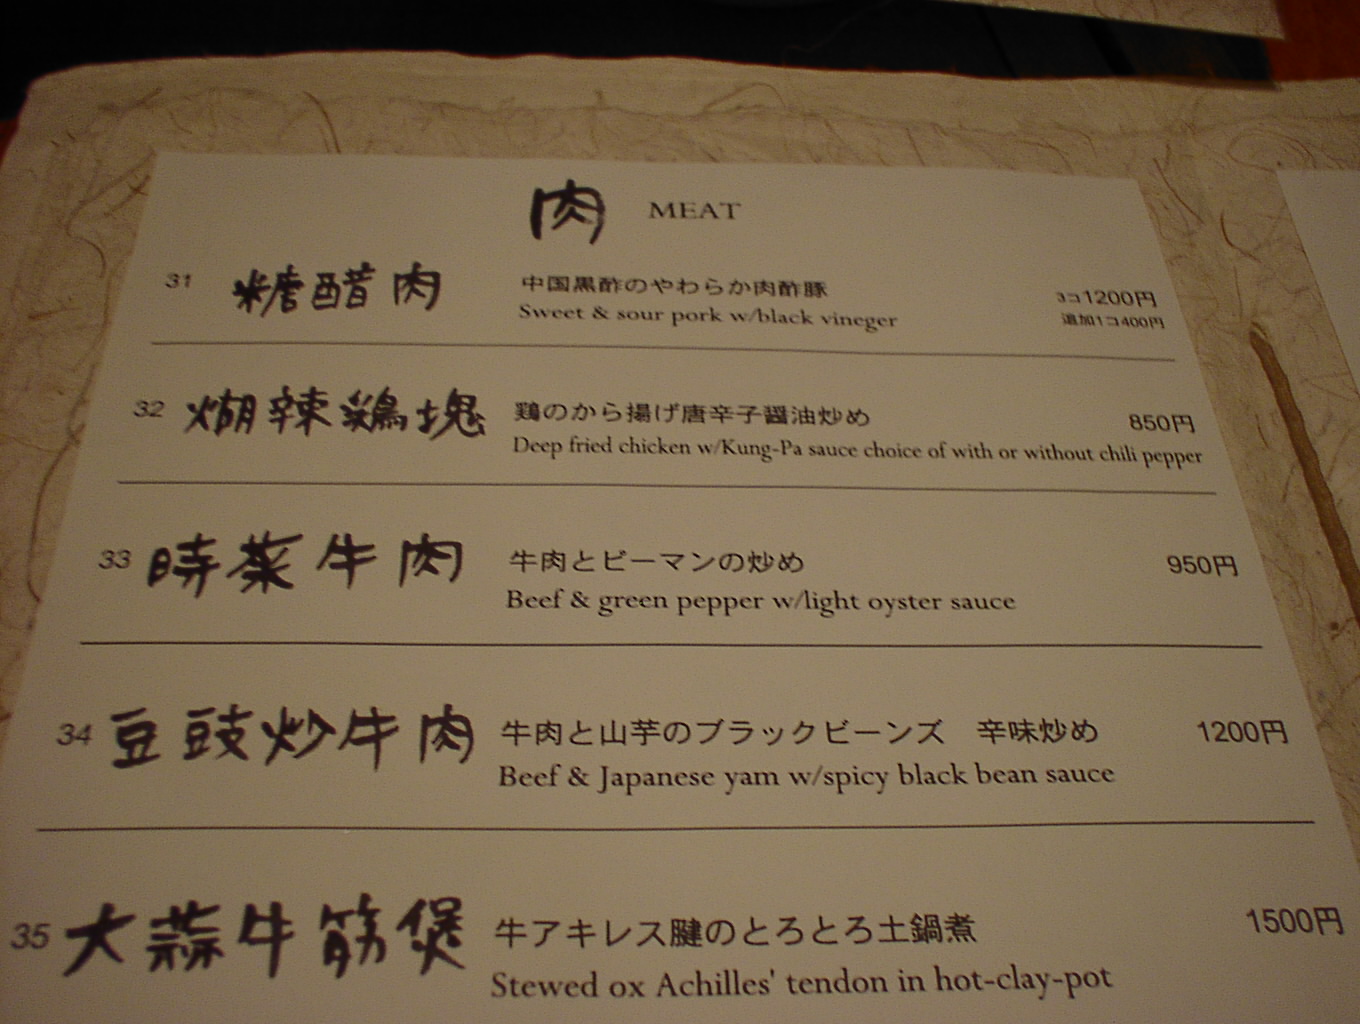 肉 MEAT
31 糖醋肉 中国黒酢のやわらか肉酢豚 3コ1200円
Sweet & sour pork w/black vineger 追加1コ400円
32 煳辣鶏塊 鶏のから揚げ唐辛子醤油炒め 850円
Deep fried chicken w/Kung-Pa sauce choice of with or without chili pepper
33 時菜牛肉 牛肉とピーマンの炒め 950円
Beef & green pepper w/light oyster sauce
34 豆豉炒牛肉 牛肉と山芋のブラックビーンズ 辛味炒め 1200円
Beef & Japanese yam w/spicy black bean sauce
35 大蒜牛筋煲 牛アキレス腱のとろとろ土鍋煮 1500円
Stewed ox Achilles' tendon in hot-clay-pot